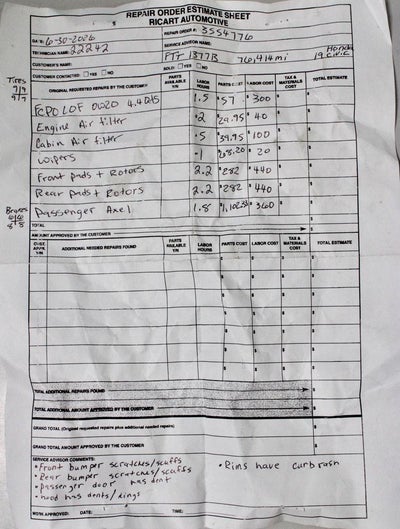 REPAIR ORDER ESTIMATE SHEET
RICART AUTOMOTIVE
DATE: 6-30-2026 REPAIR ORDER #: 3554776
TECHNICIAN NAME: 22242 SERVICE ADVISOR NAME:
CUSTOMER'S NAME: PTT 1877B 76,414 mi Honda
19 civic
CUSTOMER CONTACTED: YES NO SOLD: YES NO
ORIGINAL REQUESTED REPAIRS BY THE CUSTOMER PARTS AVAILABLE Y/N LABOR HOURS PARTS COST LABOR COST TAX & MATERIALS COST TOTAL ESTIMATE
Tires
7/9
9/7
LOF 0W20 4.4 1.5 $57 $300
Engine Air filter .2 $29.95 $40
Cabin Air filter .5 $39.95 $100
wipers .1 $68.20 $20
Front pads + Rotors 2.2 $282 $440
Rear pads + Rotors 2.2 $282 $440
Passenger Axel 1.8 $360
TOTAL
AMOUNT APPROVED BY THE CUSTOMER
CUST. APPR. Y/N ADDITIONAL NEEDED REPAIRS FOUND PARTS AVAILABLE Y/N LABOR HOURS PARTS COST LABOR COST TAX & MATERIALS COST TOTAL ESTIMATE
TOTAL ADDITIONAL REPAIRS FOUND
TOTAL ADDITIONAL AMOUNT APPROVED BY THE CUSTOMER
GRAND TOTAL (Original requested repairs plus additional needed repairs)
GRAND TOTAL AMOUNT APPROVED BY THE CUSTOMER
SERVICE ADVISOR COMMENTS:
• Front bumper scratches/scuffs • Rims have curb rash
• Rear bumper scratches/scuffs
• passenger door has dent
• hood has dents/dings
WORK APPROVED: DATE: TIME: